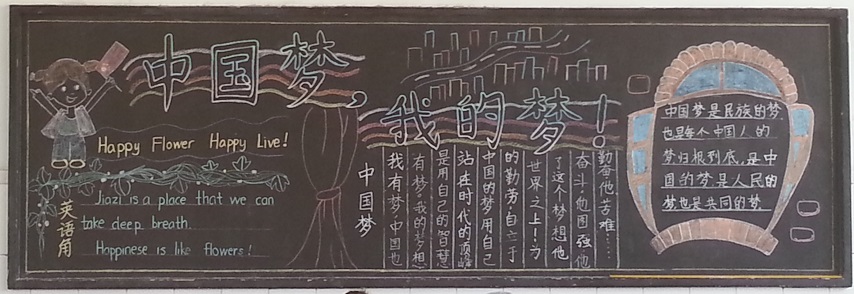 中国梦,
我的梦!
Happy Flower Happy Live!
英语角
Jiazi is a place that we can
take deep breath.
Happiness is like flowers!
中国梦
我有梦,中国也
有梦,我的梦想
是用自己的智慧
站在时代的顶峰
中国的梦用自己
的勤劳,自立于
世界之上!为
了这个梦想他
奋斗,他困强他
勤奋他苦难……
中国梦是民族的梦
也是每个中国人的
梦归根到底,是中
国的梦是人民的
梦也是共同的梦